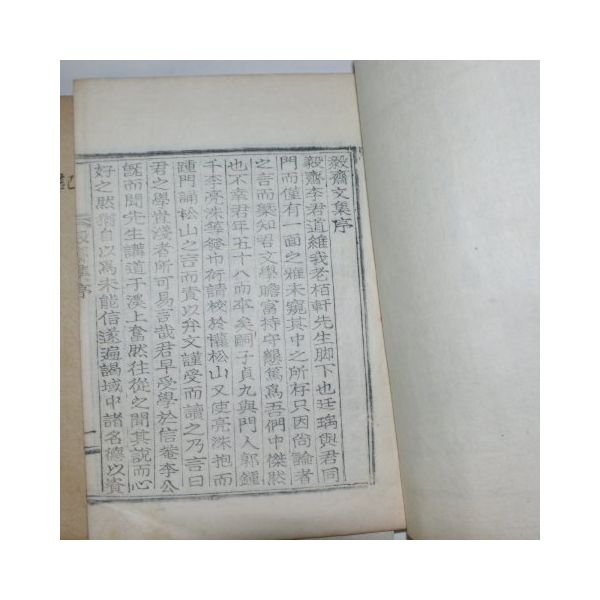 毅齋文集序
毅齋李君道維我老栢軒先生脚下也廷瑀與君同
門而僅有一面之雅未窺其中之所存只因尙論者
之言而槩知君文學贍富持守懇篤爲吾們中傑然
也不幸君年五十八而卒矣嗣子貞九與門人郭鍾
千李亮洙等發巾衍請校於權松山又使亮洙抱而
踵門誦松山之言而責以弁文謹受而讀之乃言曰
君之學貴淺者所可易言哉君早受學於信菴李公
旣而聞先生講道于溪上奮然往從之聞其說而心
好之然猶自以爲未能信遂遍謁域中諸名德以資
記